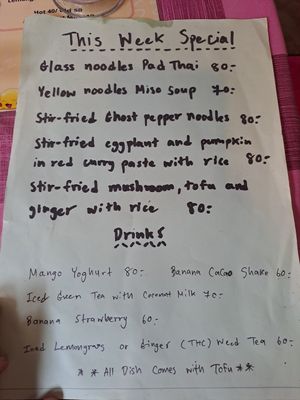 This Week Special
Glass noodles Pad Thai 80:-
Yellow noodles Miso Soup 70:-
Stir-fried Ghost pepper noodles 80:-
Stir-fried eggplant and pumpkin
in red curry paste with rice 80:-
Stir-fried mushroom, tofu and
ginger with rice 80:-
Drinks
Mango Yoghurt 80:- Banana Cacao Shake 60:-
Iced Green Tea with Coconut Milk 70:-
Banana Strawberry 60:-
Iced Lemongrass or Ginger (THC) Weed Tea 60:-
* * All Dish Comes with Tofu * *